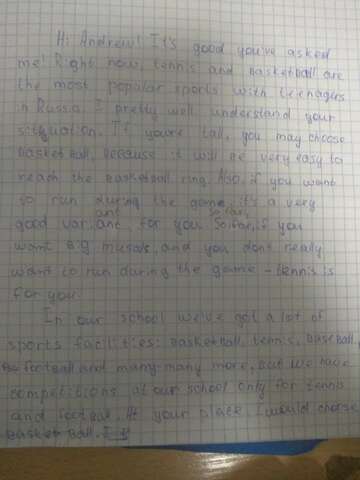 Hi Andrew! It's good you've asked
me! Right now, tennis and basketball are
the most popular sports with teenagers
in Russia. I pretty well understand your
situation. If you're tall, you may choose
basketball, because it will be very easy to
reach the basketball ring. Also, if you want
to run during the game, it's a very
ant so far,
good variant for you. So far, if you
want big musals, and you don't really
want to run during the game - tennis is
for you.
In our school we've got a lot of
sports facilities: basketball, tennis, baseball,
football and many many more, but we have
competitions at our school only for tennis
and football. At your place I would choose
basketball. I